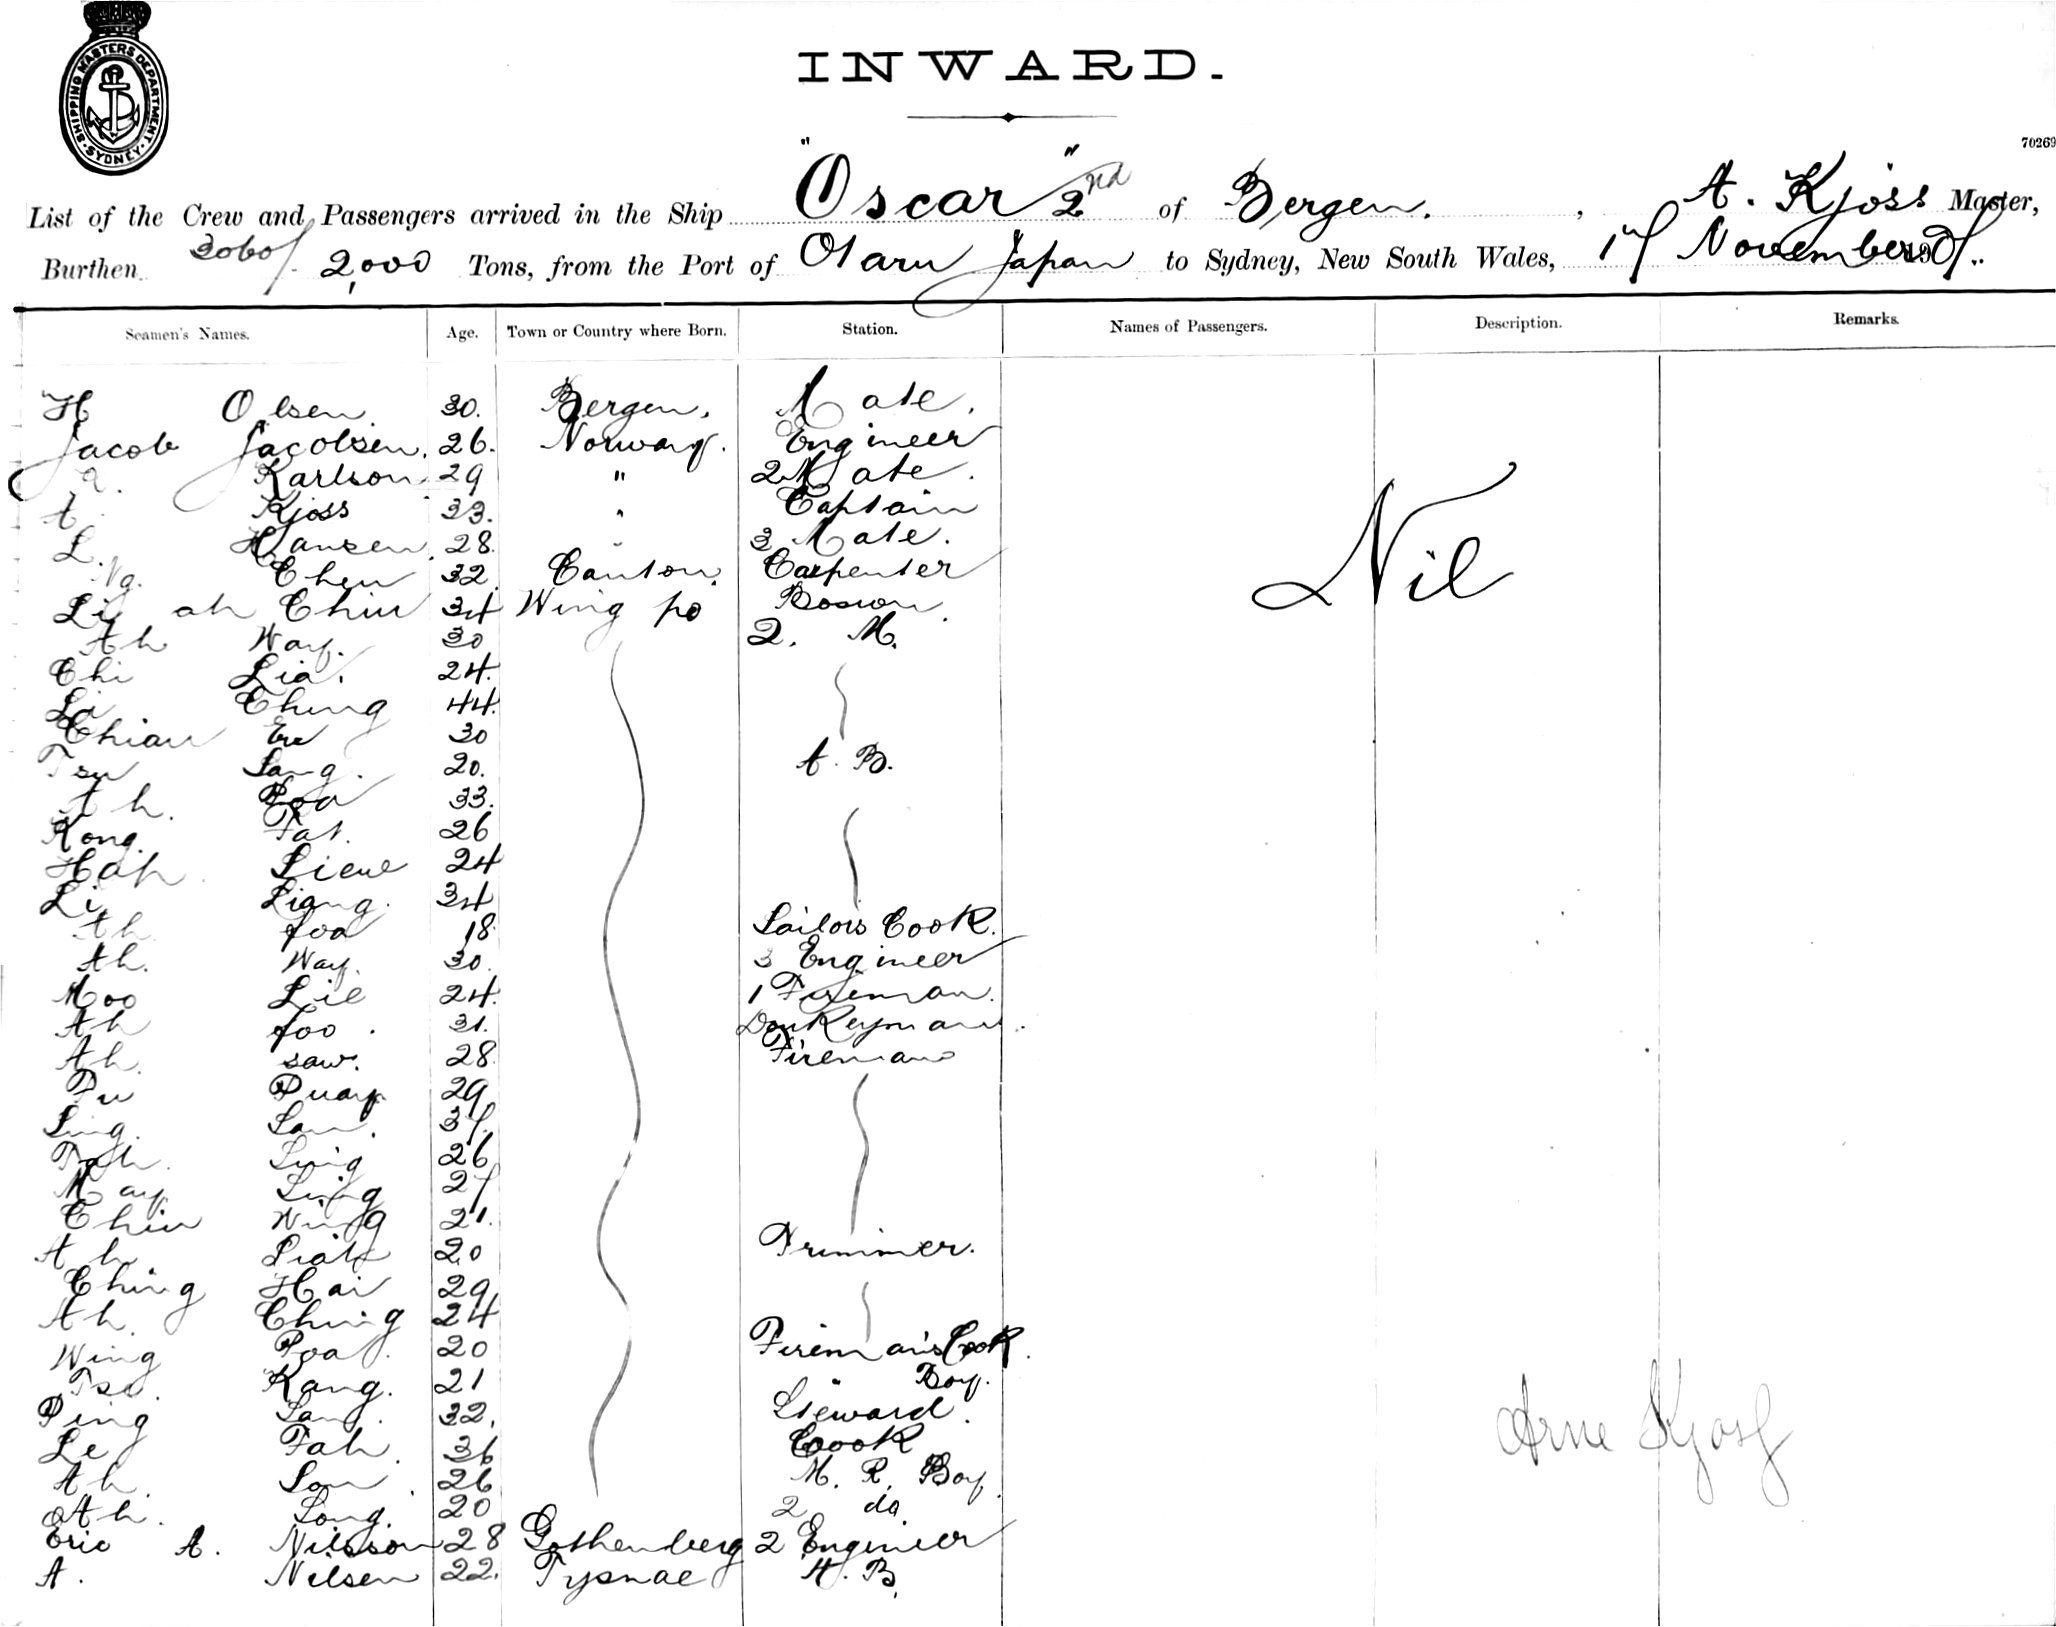 SHIPPING MASTERS DEPARTMENT · SYDNEY ·
INWARD.
70269
List of the Crew and Passengers arrived in the Ship "Oscar" 2nd of Bergen. , A. Kjöss Master,
Burthen 3060/ 2,000 Tons, from the Port of Otaru Japan to Sydney, New South Wales, November
Seamen's Names. Age. Town or Country where Born. Station. Names of Passengers. Description. Remarks.
H Olsen 30. Bergen. Mate.
Jacob Jacobsen. 26. Norway. Engineer
Karlson 29 " 2 Mate.
A Kjoss 33. " Captain
L. Hansen 28. " 3 Mate.
Ng. Chew 32 Canton. Carpenter
Nil
Li ah Chiu 34 Wing po Boswn.
Ah Way. 30 2. M.
Chi Lia. 24.
Li Ching 44.
Chiau 30
Tsu Sang. 20. A. B.
Ah. 33.
Kong. Fat. 26
Hap Lieue 24
Li Liang. 34
Ah foa 18 Sailors Cook.
Ah. Way. 30. 3 Engineer
Moo Lie 24. 1 Fireman.
Ah foo. 31. Donkeyman.
Ah. saw. 28 Fireman
Fu Quay 29
Ling. San. 37.
Ling 26
May Ling 27
Chiu Wing 21.
Ah 20 Trimmer.
Ching Hai 29
Ah. Ching 24
Wing Poa 20 Fireman's Cook.
Tse. Kang. 21 " Boy.
Ping Sang. 32. Steward.
Le Fah. 36 Cook
Ah. Son. 26 M. R. Boy.
Ah. Song. 20 2 do.
Eric A. Nilsson 28 Gothenberg 2 Engineer
A. Nilsen 22. Tysnae A. B.
Arne Kjoss